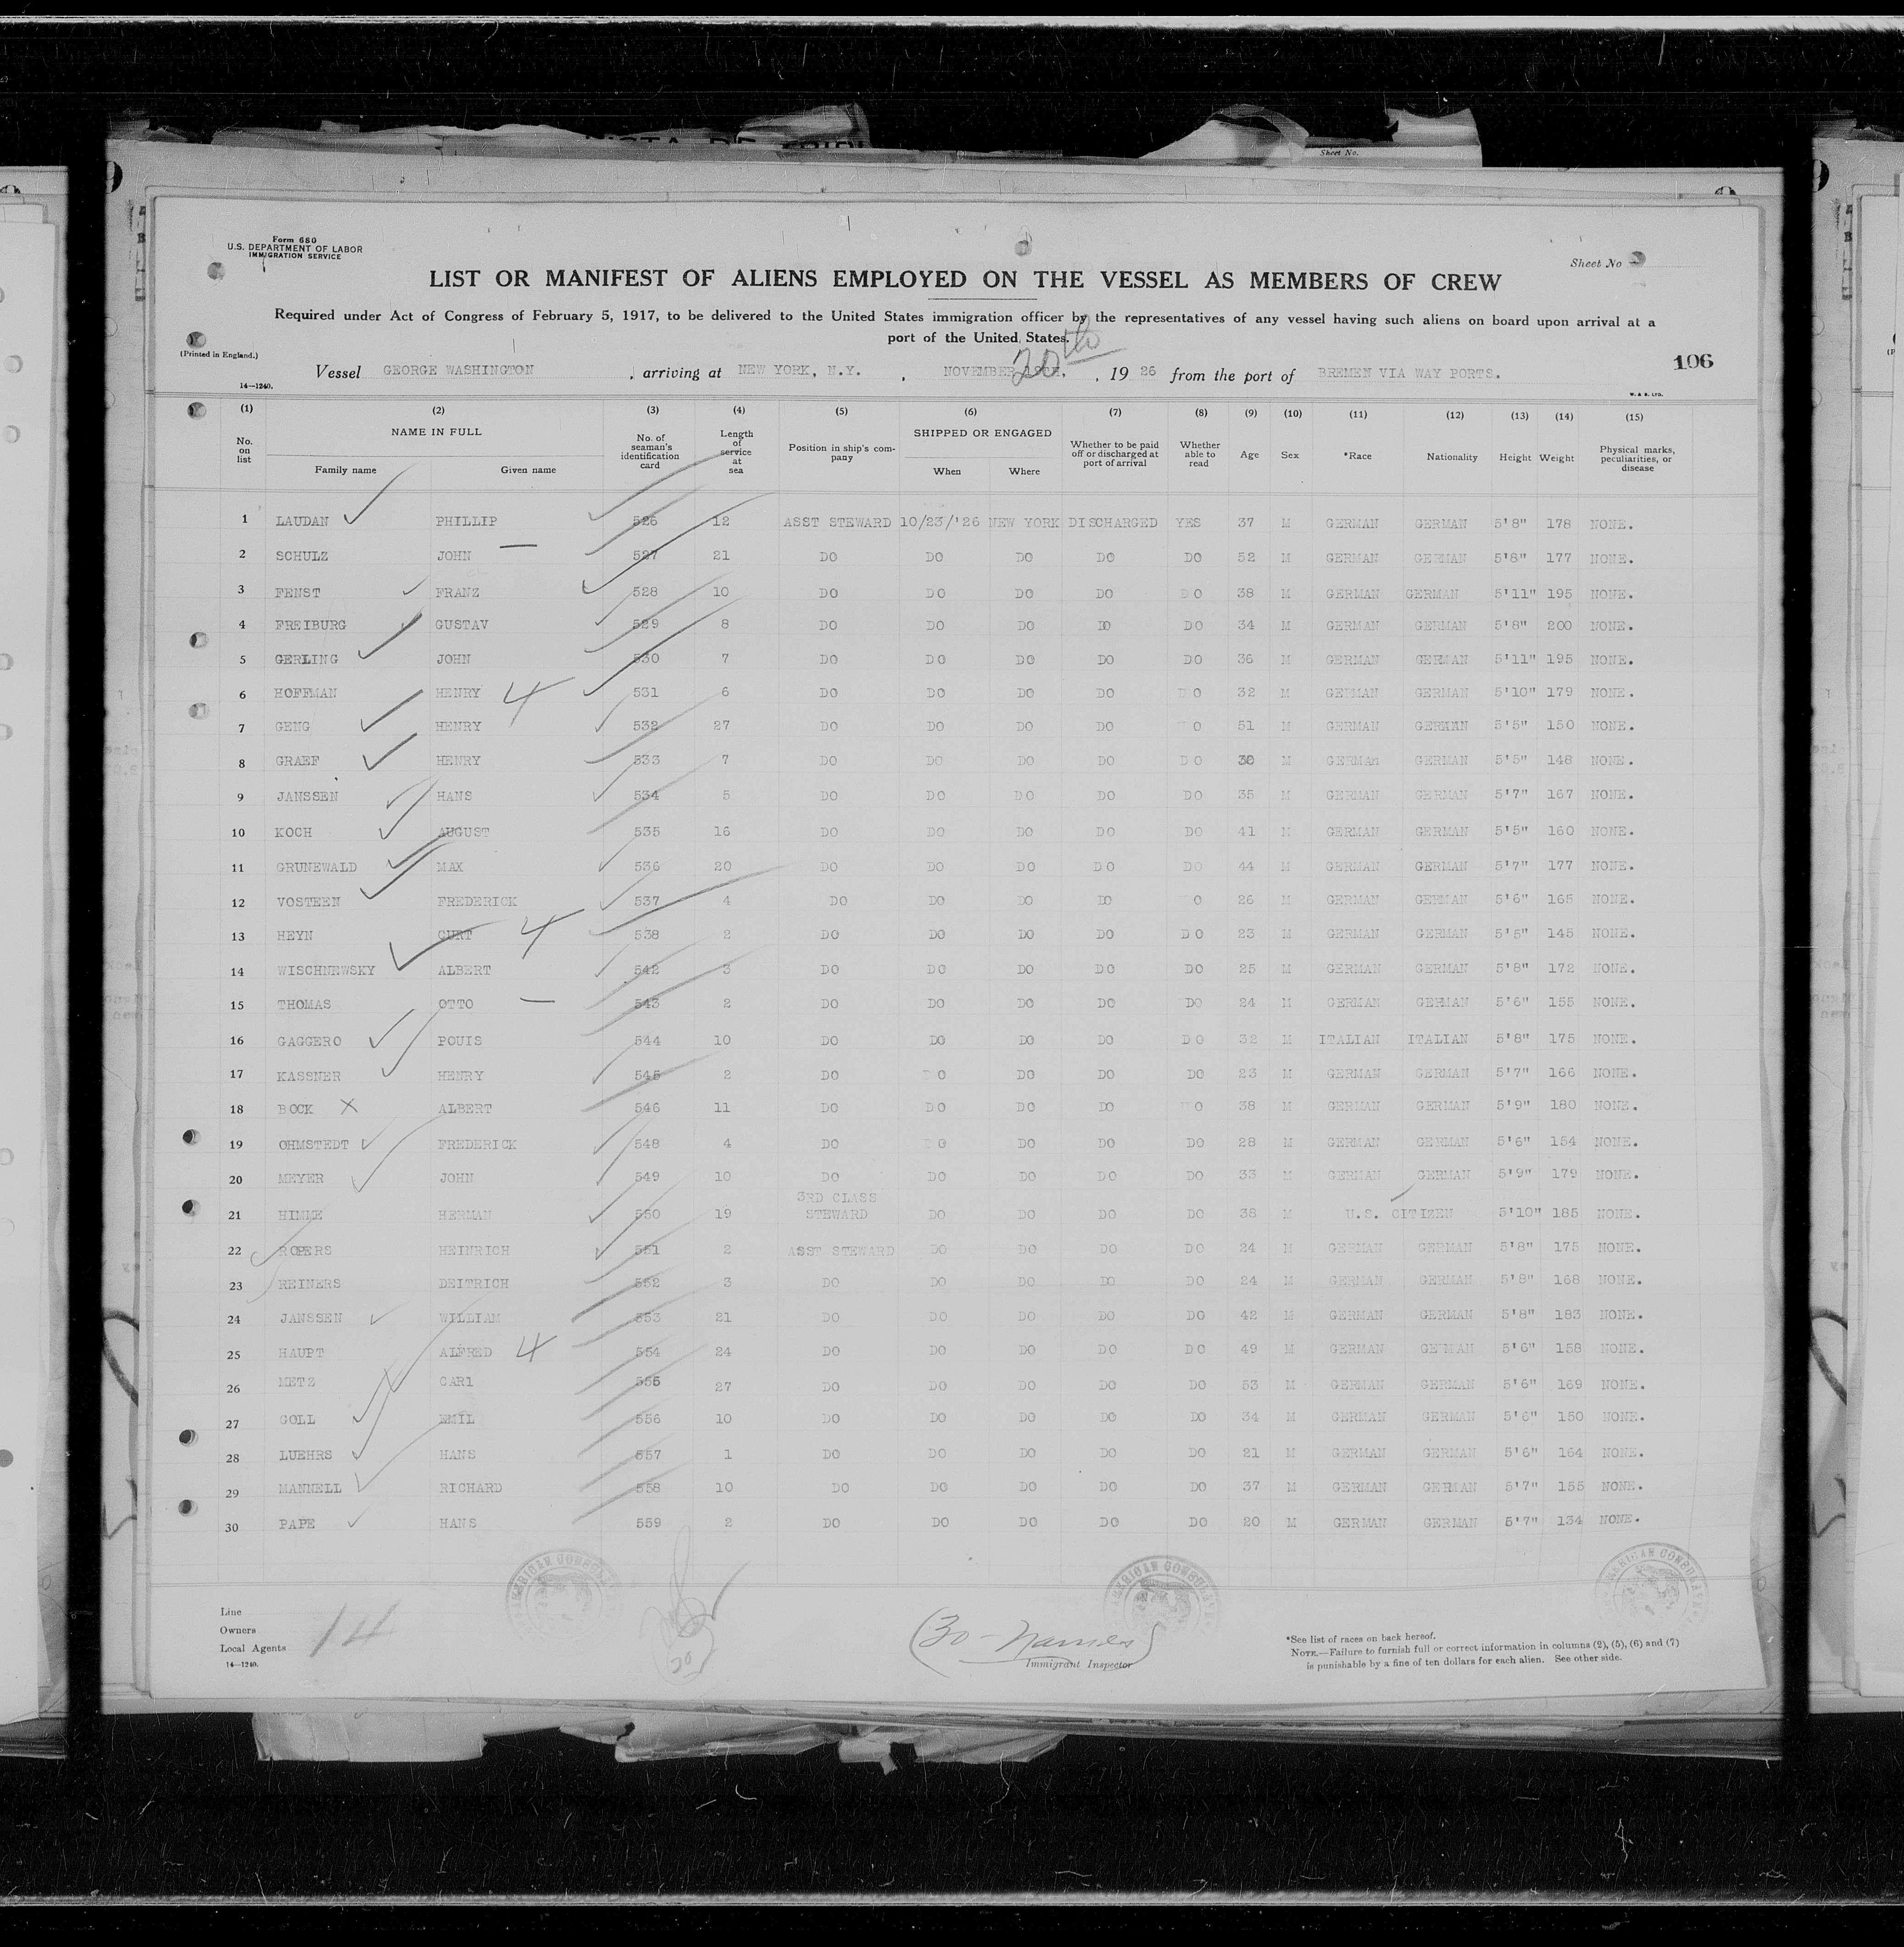 Sheet No.
Form 680
U.S. DEPARTMENT OF LABOR
IMMIGRATION SERVICE
Sheet No
LIST OR MANIFEST OF ALIENS EMPLOYED ON THE VESSEL AS MEMBERS OF CREW
Required under Act of Congress of February 5, 1917, to be delivered to the United States immigration officer by the representatives of any vessel having such aliens on board upon arrival at a
port of the United States.
(Printed in England.)
106
Vessel GEORGE WASHINGTON , arriving at NEW YORK, N.Y. , NOVEMBER 20th , 19 26 from the port of BREMEN VIA WAY PORTS.
14—1240.
W. & S. LTD.
(1) (2) (3) (4) (5) (6) (7) (8) (9) (10) (11) (12) (13) (14) (15)
No. on list NAME IN FULL Family name Given name No. of seaman's identification card Length of service at sea Position in ship's company SHIPPED OR ENGAGED When Where Whether to be paid off or discharged at port of arrival Whether able to read Age Sex *Race Nationality Height Weight Physical marks, peculiarities, or disease
1 LAUDAN PHILLIP 526 12 ASST STEWARD 10/23/'26 NEW YORK DISCHARGED YES 37 M GERMAN GERMAN 5'8" 178 NONE.
2 SCHULZ JOHN — 527 21 DO DO DO DO DO 52 M GERMAN GERMAN 5'8" 177 NONE.
3 FENST FRANZ 528 10 DO DO DO DO DO 38 M GERMAN GERMAN 5'11" 195 NONE.
4 FREIBURG GUSTAV 529 8 DO DO DO DO DO 34 M GERMAN GERMAN 5'8" 200 NONE.
5 GERLING JOHN 530 7 DO DO DO DO DO 36 M GERMAN GERMAN 5'11" 195 NONE.
6 HOFFMAN HENRY 4 531 6 DO DO DO DO DO 32 M GERMAN GERMAN 5'10" 179 NONE.
7 GENG HENRY 532 27 DO DO DO DO O 51 M GERMAN GERMAN 5'5" 150 NONE.
8 GRAEF HENRY 533 7 DO DO DO DO DO M GERMAN GERMAN 5'5" 148 NONE.
9 JANSSEN HANS 534 5 DO DO DO DO DO 35 M GERMAN GERMAN 5'7" 167 NONE.
10 KOCH AUGUST 535 16 DO DO DO DO DO 41 M GERMAN GERMAN 5'5" 160 NONE.
11 GRUNEWALD MAX 536 20 DO DO DO DO DO 44 M GERMAN GERMAN 5'7" 177 NONE.
12 VOSTEEN FREDERICK 537 4 DO DO DO DO O 26 M GERMAN GERMAN 5'6" 165 NONE.
13 HEYN CURT 4 538 2 DO DO DO DO DO 23 M GERMAN GERMAN 5'5" 145 NONE.
14 WISCHNEWSKY ALBERT 542 3 DO DO DO DO DO 25 M GERMAN GERMAN 5'8" 172 NONE.
15 THOMAS OTTO — 543 2 DO DO DO DO DO 24 M GERMAN GERMAN 5'6" 155 NONE.
16 GAGGERO POUIS 544 10 DO DO DO DO DO 32 M ITALIAN ITALIAN 5'8" 175 NONE.
17 KASSNER HENRY 545 2 DO DO DO DO DO 23 M GERMAN GERMAN 5'7" 166 NONE.
18 BOCK X ALBERT 546 11 DO DO DO DO O 38 M GERMAN GERMAN 5'9" 180 NONE.
19 OHMSTEDT FREDERICK 548 4 DO DO DO DO DO 28 M GERMAN GERMAN 5'6" 154 NONE.
20 MEYER JOHN 549 10 DO DO DO DO DO 33 M GERMAN GERMAN 5'9" 179 NONE.
21 HIMME HERMAN 550 19 3RD CLASS STEWARD DO DO DO DO 38 M U.S. CITIZEN 5'10" 185 NONE.
22 ROPERS HEINRICH 551 2 ASST STEWARD DO DO DO DO 24 M GERMAN GERMAN 5'8" 175 NONE.
23 REINERS DEITRICH 552 3 DO DO DO DO DO 24 M GERMAN GERMAN 5'8" 168 NONE.
24 JANSSEN WILLIAM 553 21 DO DO DO DO DO 42 M GERMAN GERMAN 5'8" 183 NONE.
25 HAUPT ALFRED 4 554 24 DO DO DO DO DO 49 M GERMAN GERMAN 5'6" 158 NONE.
26 METZ CARl 555 27 DO DO DO DO DO 53 M GERMAN GERMAN 5'6" 169 NONE.
27 GOLL EMIL 556 10 DO DO DO DO DO 34 M GERMAN GERMAN 5'6" 150 NONE.
28 LUEHRS HANS 557 1 DO DO DO DO DO 21 M GERMAN GERMAN 5'6" 164 NONE.
29 MANNELL RICHARD 558 10 DO DO DO DO DO 37 M GERMAN GERMAN 5'7" 155 NONE.
30 PAPE HANS 559 2 DO DO DO DO DO 20 M GERMAN GERMAN 5'7" 134 NONE.
AMERICAN CONSULATE
AMERICAN CONSULATE
AMERICAN CONSULATE
Line
Owners
Local Agents
14
14—1240.
(30 - Names)
Immigrant Inspector
*See list of races on back hereof.
NOTE.—Failure to furnish full or correct information in columns (2), (5), (6) and (7)
is punishable by a fine of ten dollars for each alien. See other side.